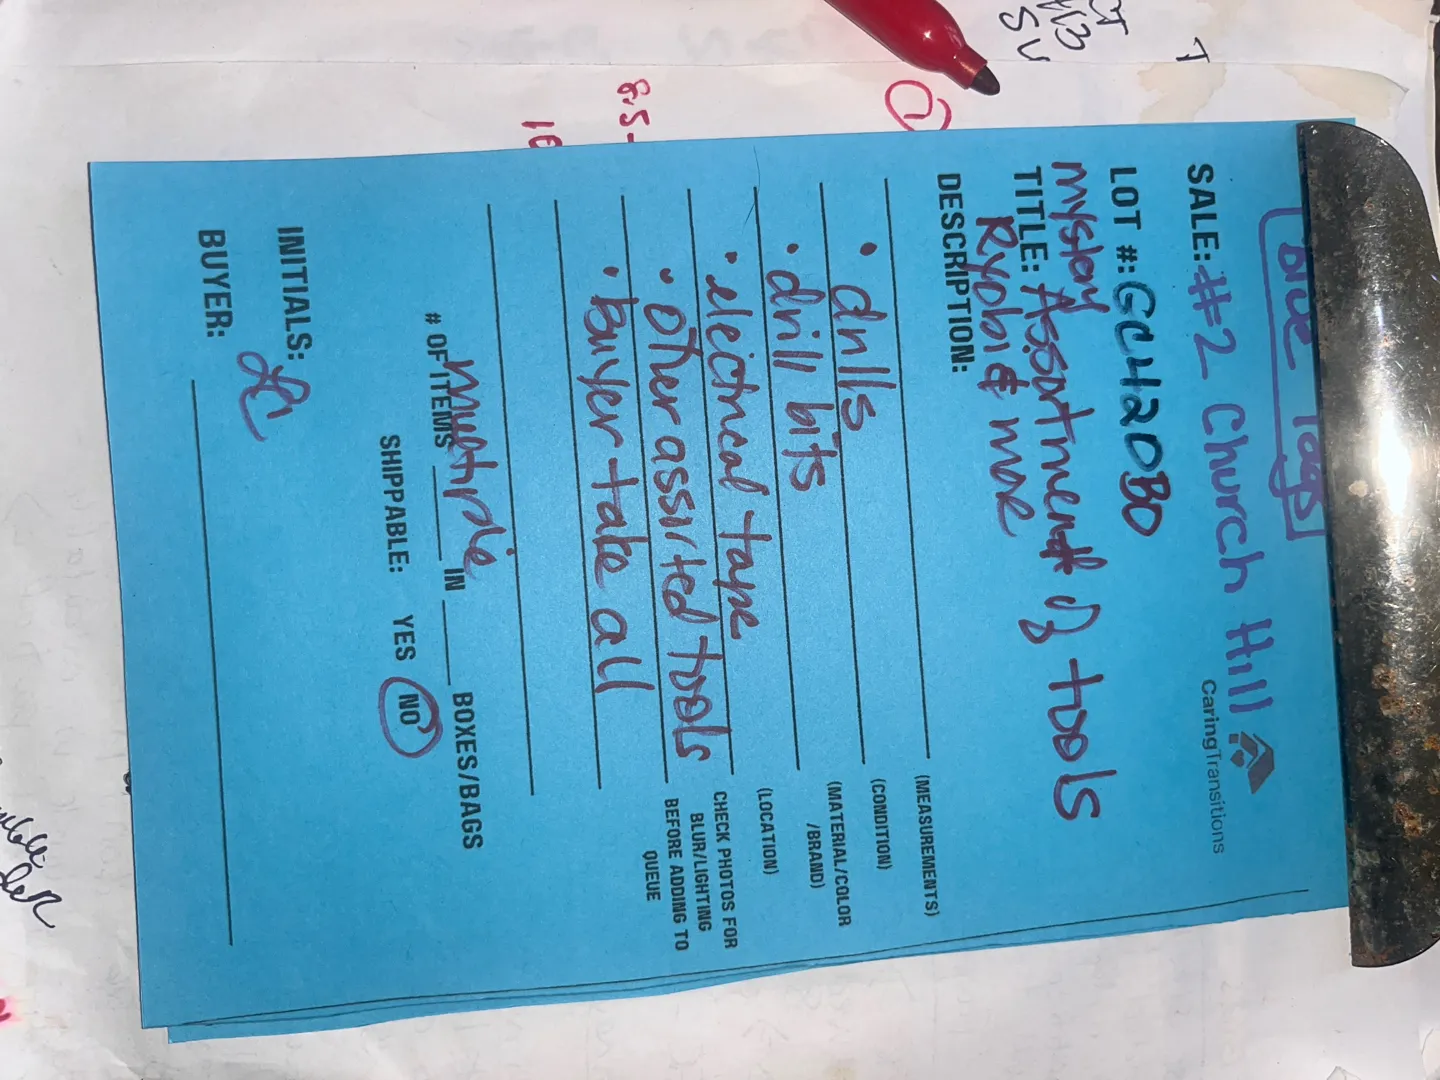 Blue Tags
SALE: #2 Church Hill
CaringTransitions
LOT #: GC1420BO
mystery
TITLE: Assortment of tools
Ryobi & more
DESCRIPTION:
(MEASUREMENTS)
• drills
(CONDITION)
• drill bits
(MATERIAL/COLOR
/BRAND)
• electrical tape
(LOCATION)
• other assorted tools
CHECK PHOTOS FOR
BLUR/LIGHTING
BEFORE ADDING TO
QUEUE
• Buyer take all
# OF ITEMS multiple IN BOXES/BAGS
SHIPPABLE: YES NO
INITIALS: LC
BUYER:
1
8.5-